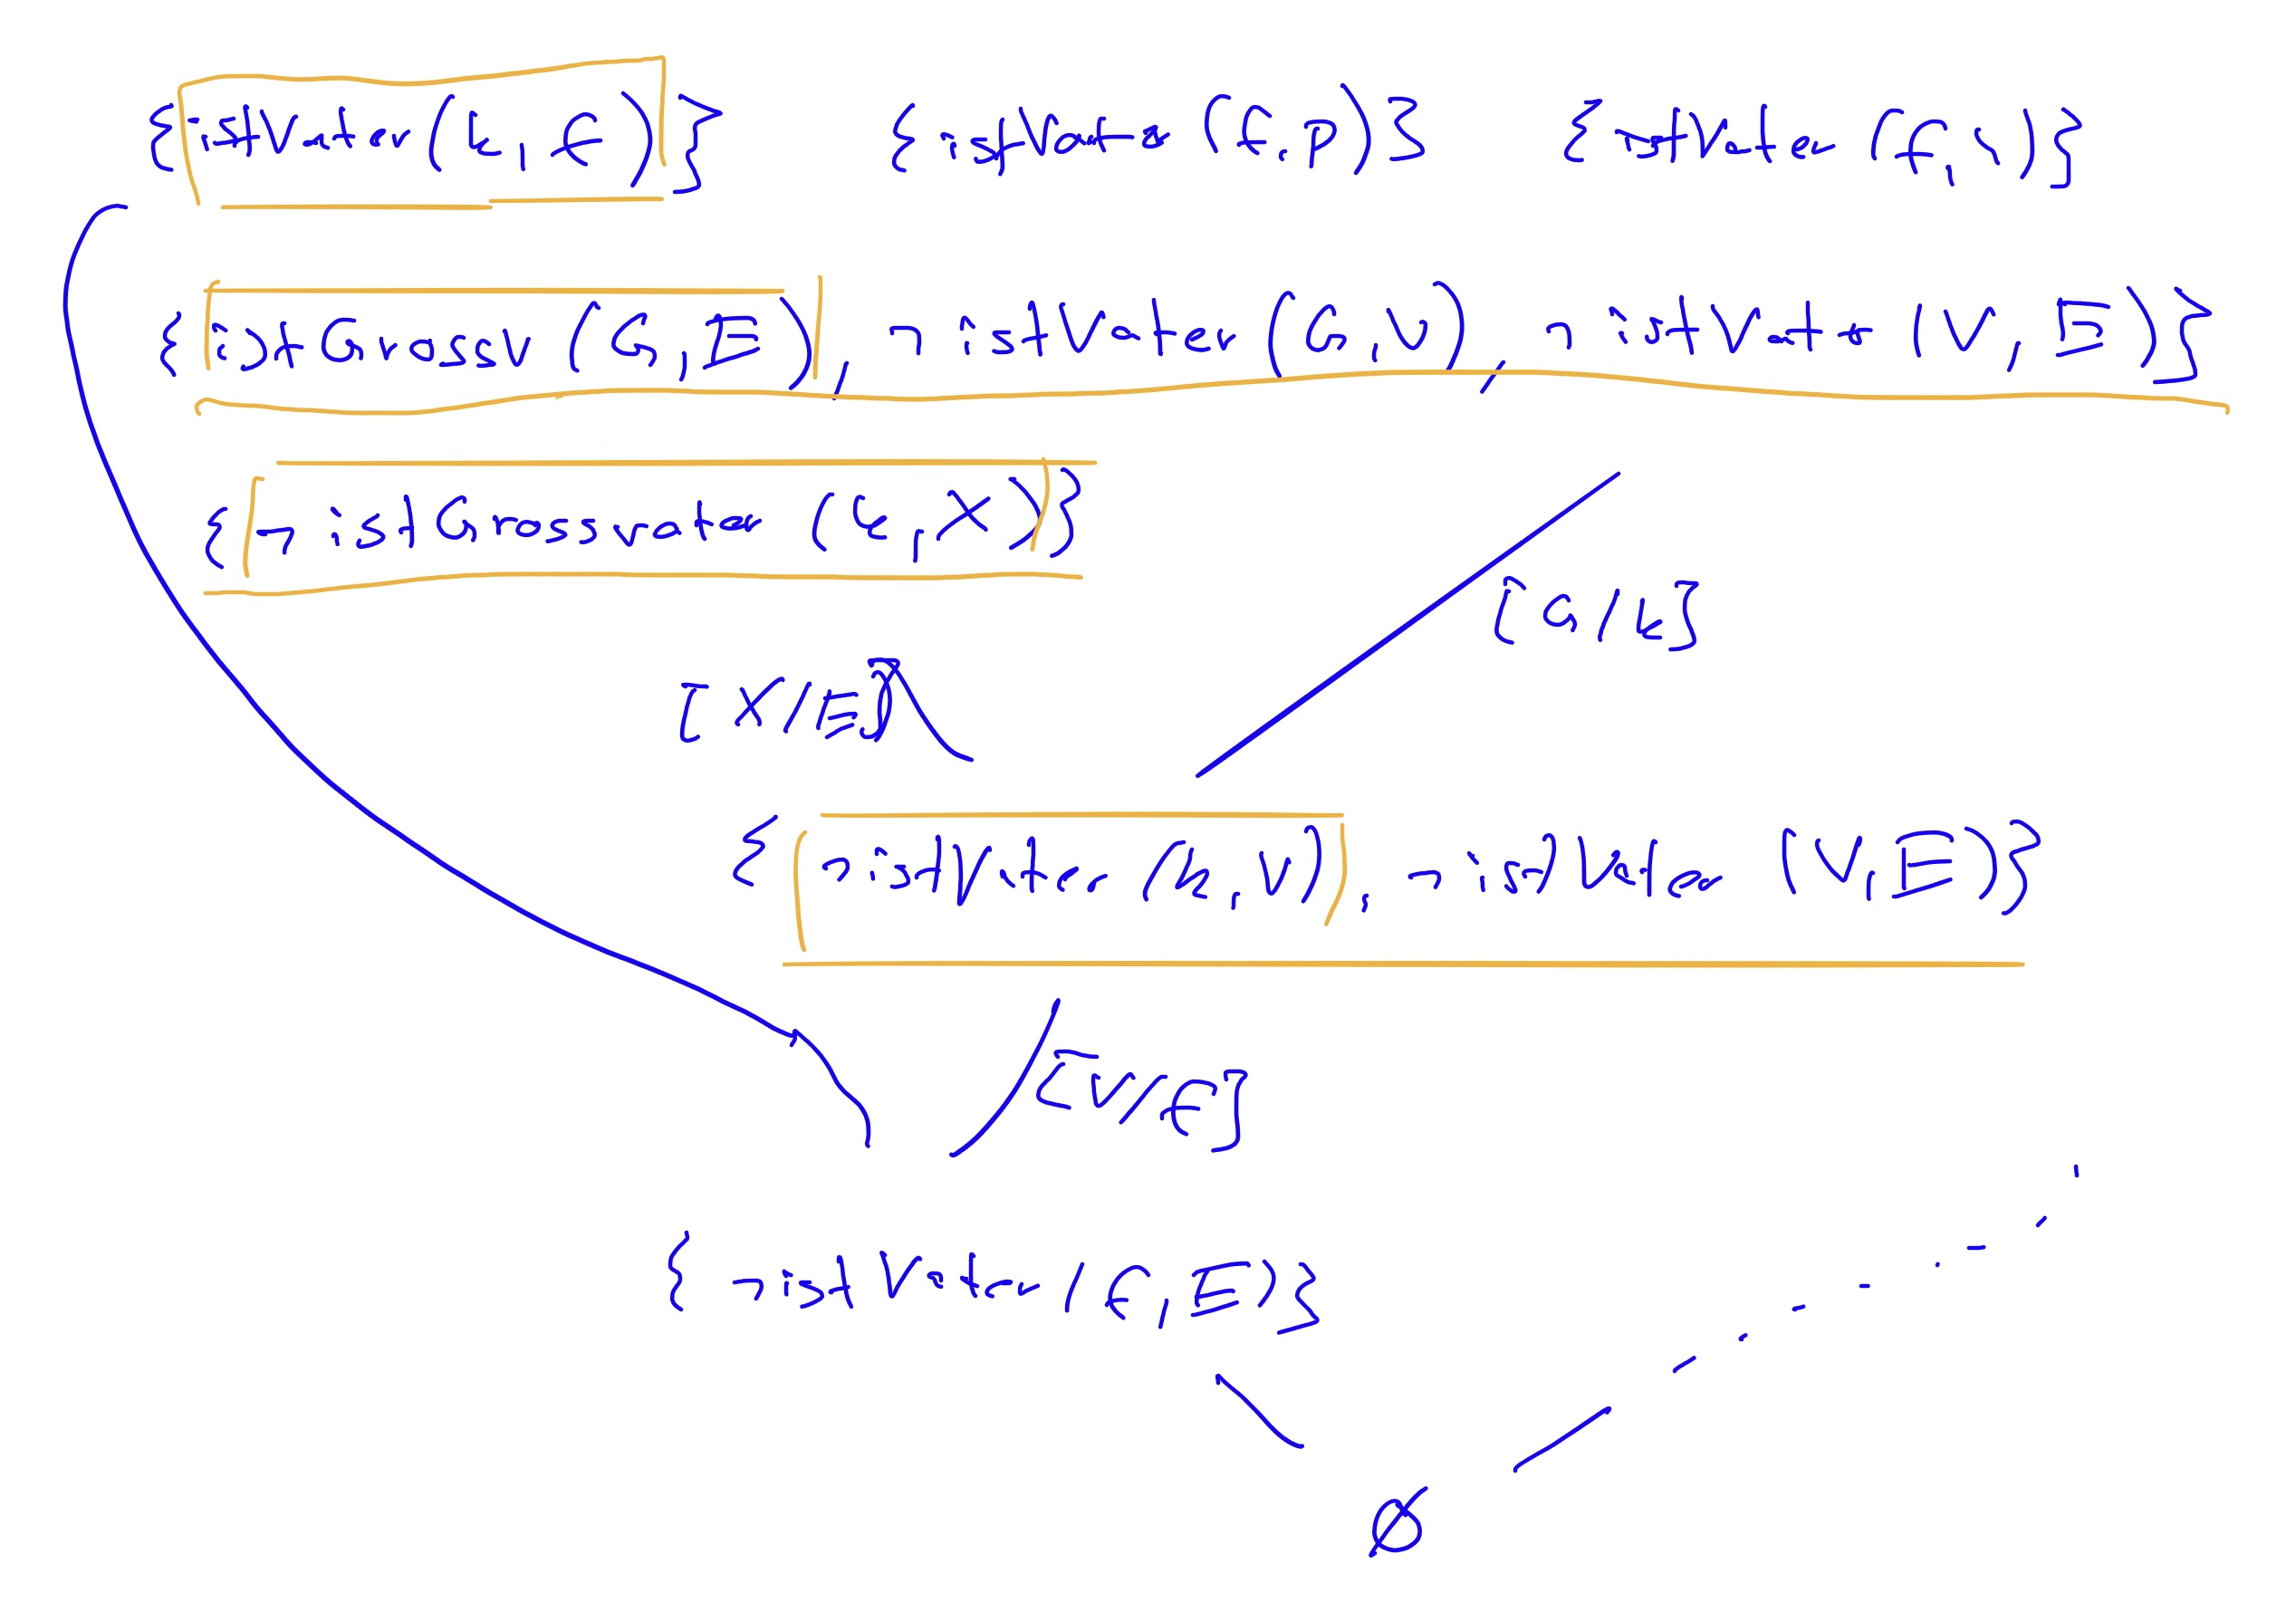 {istVater(k,€)} {istVater(€,p)} {istVater(€,v)}
{istGrossV(G,E), ¬istVater(G,V), ¬istVater(V,E)}
{¬istGrossvater(k,X)}
[G/k]
[X/E]
{¬istVater(k,V), ¬istVater(V,E)}
[V/€]
{¬istVater(€,E)}
∅